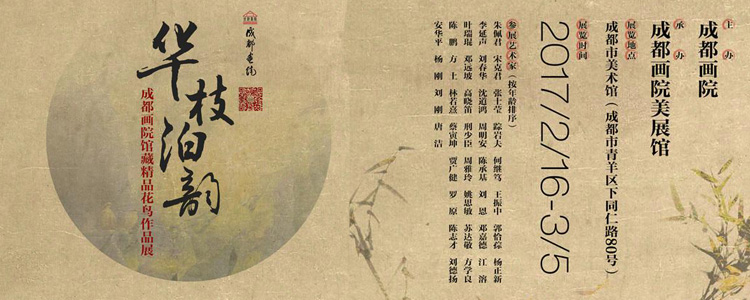 主办
成都画院
承办
成都画院美展馆
展览地点
成都市美术馆（成都市青羊区下同仁路80号）
展览时间
2017/2/16-3/5
参展艺术家（按年龄排序）
朱佩君 宋克君 张士莹 踪岩夫 何继笃 王振中 郭怡孮 杨正新
李延声 刘春华 沈道鸿 周明安 陈承基 刘恩 邓嘉德 江溶
叶瑞琨 邓远坡 高晓笛 邢少臣 周雅玲 姚思敏 苏达敬 方学良
陈鹏 方土 林若熹 蔡寅坤 贾广健 罗原 陈志才 刘德扬
安华平 杨刚 刘刚 唐洁
成都画院
华枝泊韵
成都画院馆藏精品花鸟作品展